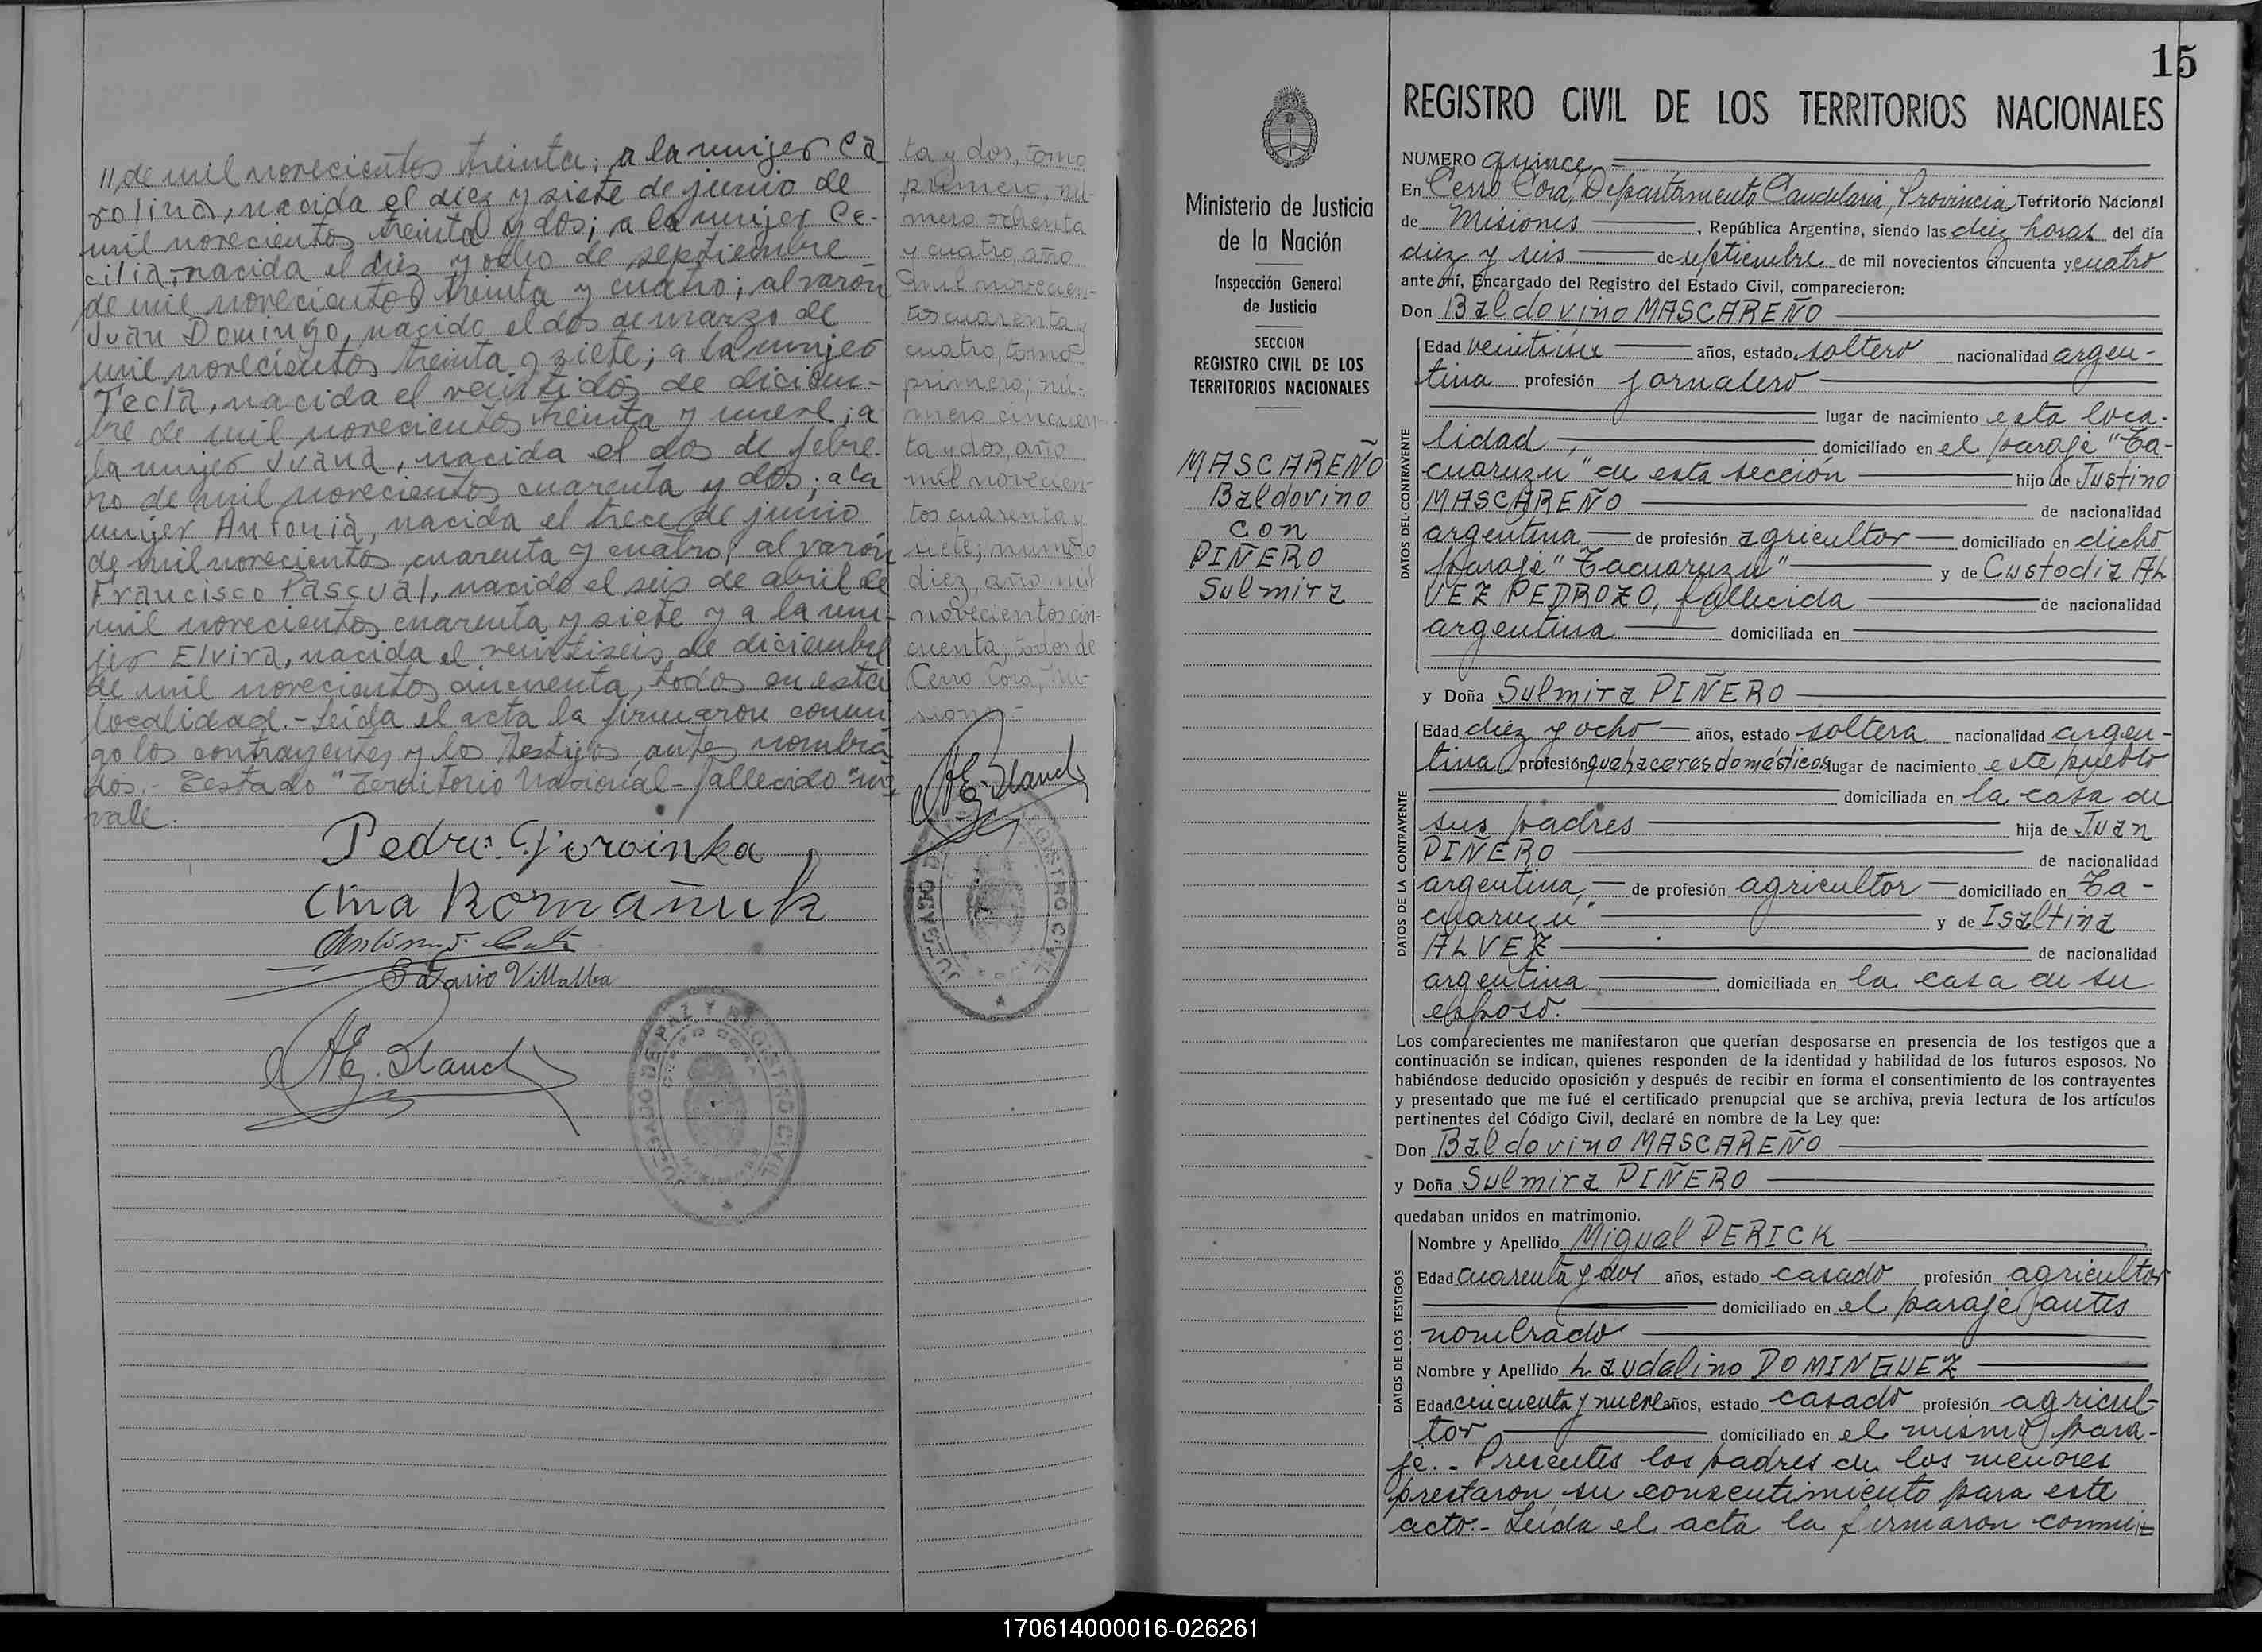 // de mil novecientos treinta; a la mujer Ca
rolina, nacida el diez y siete de junio de
mil novecientos treinta y dos; a la mujer Ce-
cilia, nacida el diez y ocho de septiembre
de mil novecientos treinta y cuatro; al varón
Juan Domingo, nacido el dos de marzo de
mil novecientos treinta y siete; a la mujer
Tecla, nacida el veintidos de diciem-
bre de mil novecientos treinta y nueve; a
la mujer Juana, nacida el dos de febre-
ro de mil novecientos cuarenta y dos; a la
mujer Antonia, nacida el trece de junio
de mil novecientos cuarenta y cuatro; al varón
Francisco Pascual, nacido el seis de abril de
mil novecientos cuarenta y siete y a la mu-
jer Elvira, nacida el veintiseis de diciembre
de mil novecientos cincuenta, todos en esta
localidad.- Leída el acta la firmaron conmi
go los contrayentes y los testigos antes nombra
dos.- Testado "Territorio Nacional - fallecido" no
vale.
Pedro
Ana Romañuk
Villalba
ta y dos, tomo
primero, nú-
mero ochenta
y cuatro año
mil novecien-
tos cuarenta y
cuatro, tomo
primero; nú-
mero cincuen-
ta y dos, año
mil novecien-
tos cuarenta y
siete; número
diez, año mil
novecientos cin-
cuenta, todos de
Cerro Corá, Mi-
siones.-
JUZGADO DE PAZ Y REGISTRO CIVIL
15
Ministerio de Justicia
de la Nación
Inspección General
de Justicia
SECCION
REGISTRO CIVIL DE LOS
TERRITORIOS NACIONALES
MASCAREÑO
Baldovino
con
PIÑERO
Sulmira
REGISTRO CIVIL DE LOS TERRITORIOS NACIONALES
NUMERO quince
En Cerro Corá, Departamento Candelaria, Provincia Territorio Nacional
de Misiones, República Argentina, siendo las diez horas del día
diez y seis de septiembre de mil novecientos cincuenta y cuatro
ante mí, Encargado del Registro del Estado Civil, comparecieron:
Don Baldovino MASCAREÑO
DATOS DEL CONTRAYENTE
Edad años, estado soltero nacionalidad argen-
tina profesión jornalero
lugar de nacimiento esta loca-
lidad, domiciliado en el paraje "Ta-
cuaruzu" de esta sección hijo de Justino
MASCAREÑO de nacionalidad
argentina de profesión agricultor domiciliado en dicho
paraje "Tacuaruzu" y de Custodia AL
VEZ PEDROZO, fallecida de nacionalidad
argentina domiciliada en
y Doña Sulmira PIÑERO
DATOS DE LA CONTRAYENTE
Edad diez y ocho años, estado soltera nacionalidad argen-
tina profesión quehaceres domésticos lugar de nacimiento este pueblo
domiciliada en la casa de
sus padres hija de Juan
PIÑERO de nacionalidad
argentina, de profesión agricultor domiciliado en Ta-
y de Isaltina
ALVEZ de nacionalidad
argentina domiciliada en la casa de su
esposo.
Los comparecientes me manifestaron que querían desposarse en presencia de los testigos que a
continuación se indican, quienes responden de la identidad y habilidad de los futuros esposos. No
habiéndose deducido oposición y después de recibir en forma el consentimiento de los contrayentes
y presentado que me fué el certificado prenupcial que se archiva, previa lectura de los artículos
pertinentes del Código Civil, declaré en nombre de la Ley que:
Don Baldovino MASCAREÑO
y Doña Sulmira PIÑERO
quedaban unidos en matrimonio.
DATOS DE LOS TESTIGOS
Nombre y Apellido Miguel PERICK
Edad cuarenta y dos años, estado casado profesión agricultor
domiciliado en el paraje antes
nombrado
Nombre y Apellido Laudelino DOMINGUEZ
Edad cincuenta y nueve años, estado casado profesión agricul-
tor domiciliado en el mismo para-
je.- Presentes los padres de los menores
prestaron su consentimiento para este
acto.- Leída el acta la firmaron conmi=
170614000016-026261